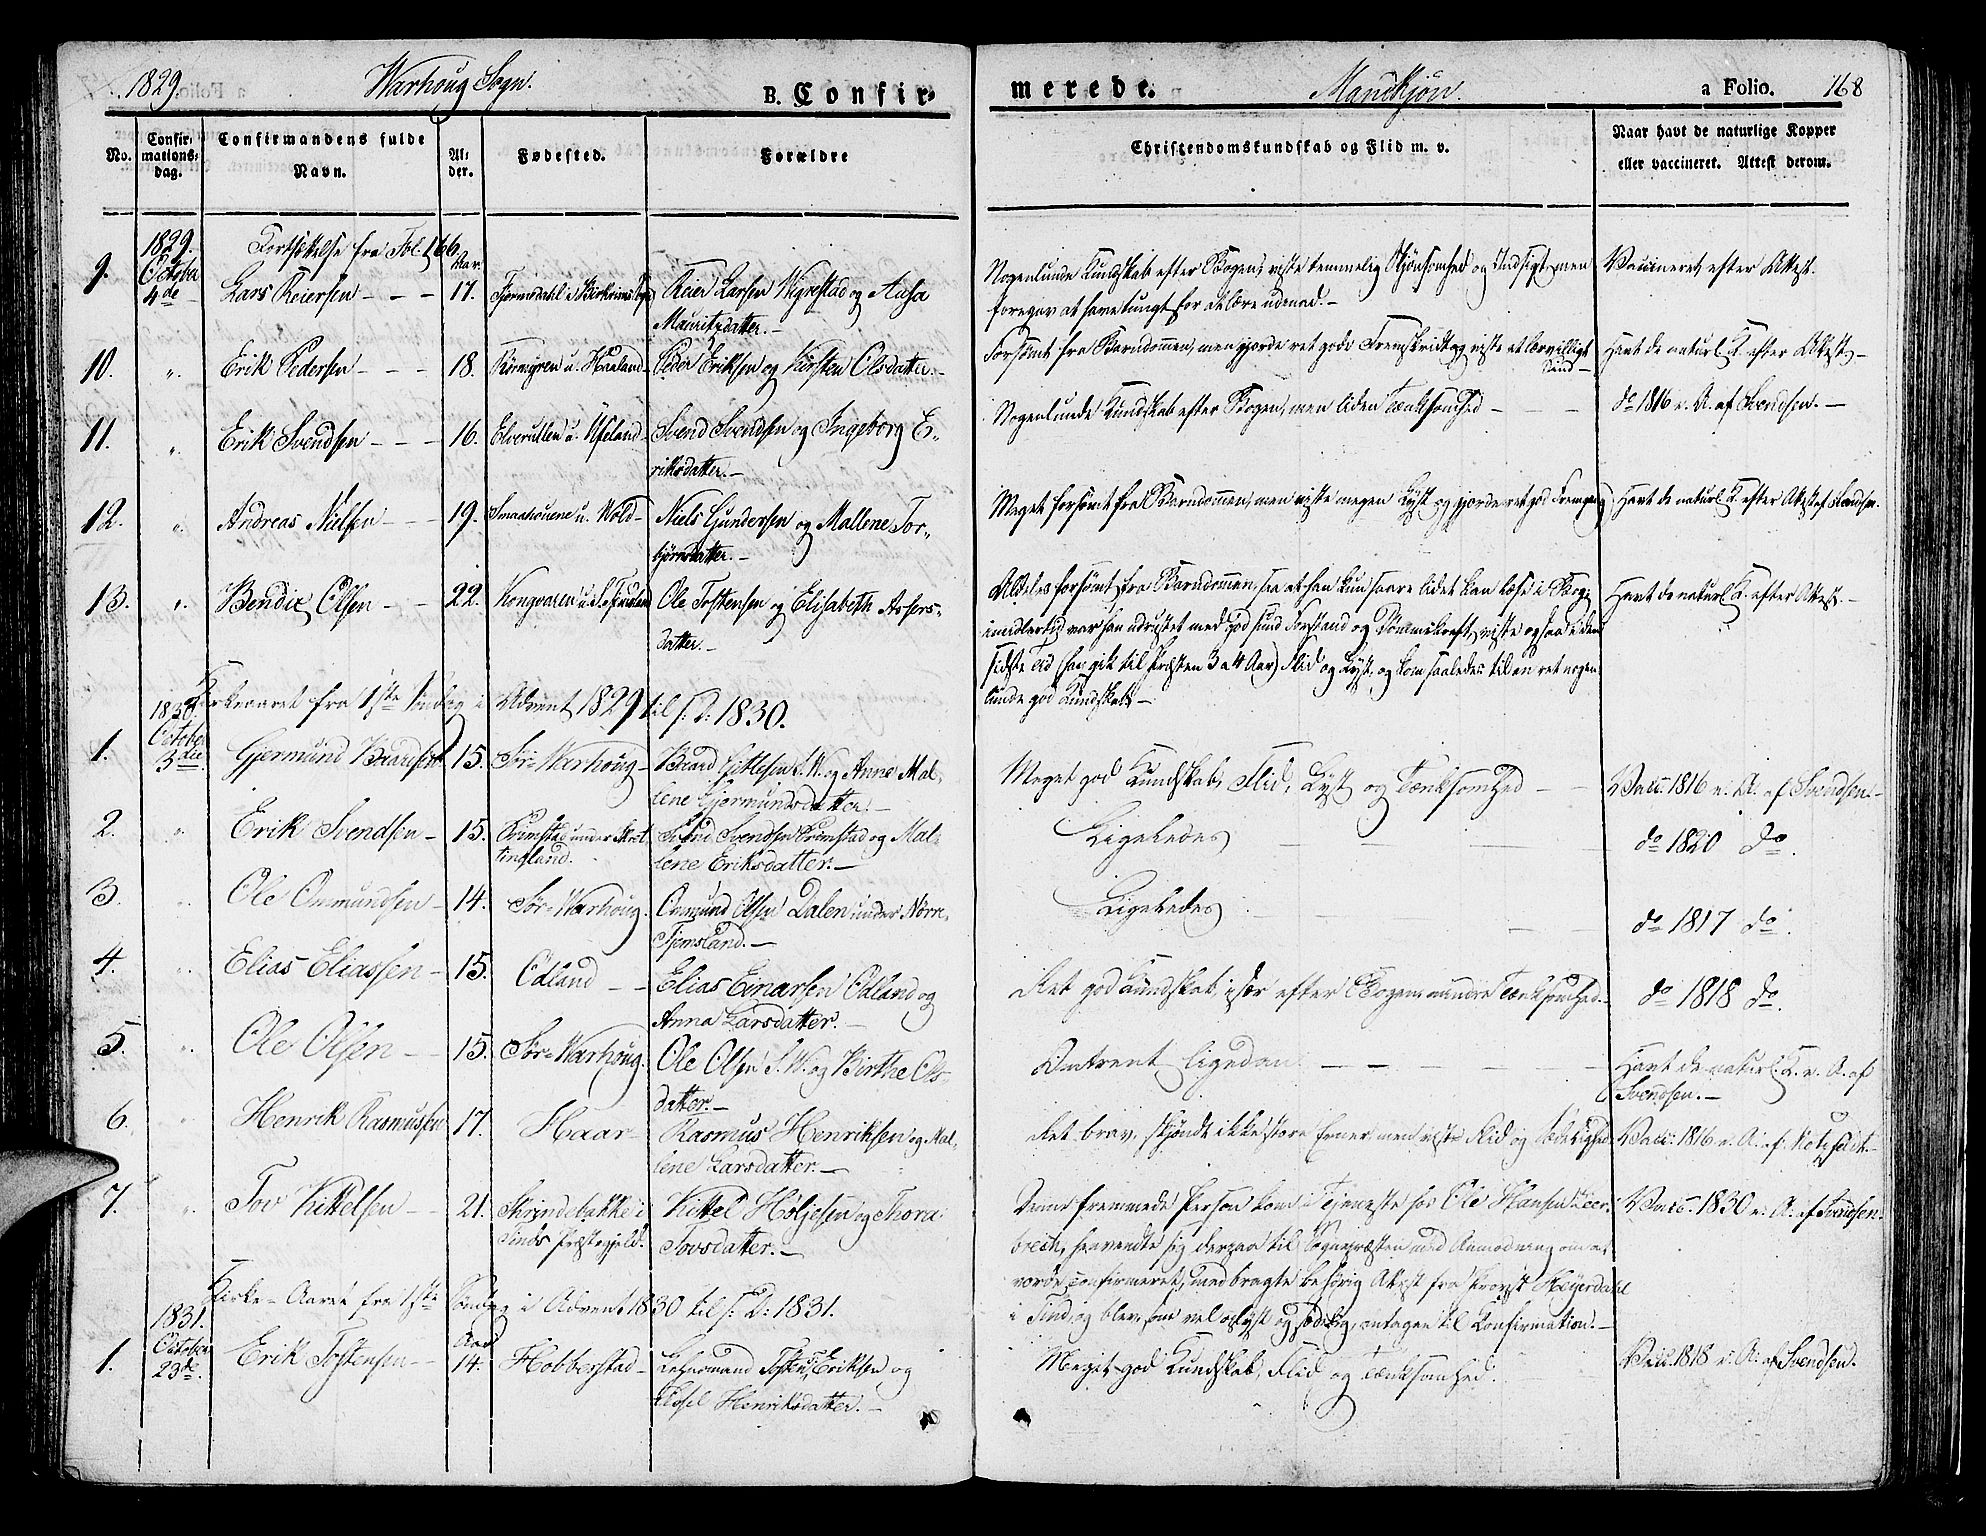 1829. Warhoug Sogn. B. Confir-
merede. Mandkjön. a Folio. 168
No. Confir-mations-dag. Confirmandens fulde Navn. Al-der. Fødested. Forældre
Christendomskundskab og Flid m. v. Naar havt de naturlige Kopper eller vaccineret. Attest derom.
1829. Fortsættelse fra Fol. 166. Aar.
9. October 4de Lars Reiersen - - - 17. Reier Larsen Wigrestad og Aasa
Mauritzdatter. -
Nogenlunde Kundskab efter Bogen, viste temmelig Skjönsomhed og Indsigt, men
foregav at have tungt for at lære udenad. -
Vaccineret efter Attest.
10. " Erik Pedersen - - - 18. Peder Eriksen og Kirsten Olsdatter. -
Forsömt fra Barndommen, men gjorde ret gode Fremskridt og viste et lærvilligt
Sind -
Havt de naturl. K. efter Attest -
11. " Erik Svendsen - - - 16. Elverullen u. Useland - Svend Svendsen og Ingeborg E-
riksdatter. -
Nogenlunde Kundskab efter Bogen, men liden Tænksomhed -
do 1816 v. A. af Svendsen. -
12. " Andreas Nielsen - - 19. Smaahouene u. Wold - Niels Gundersen og Mallene Tor-
björnsdatter. -
Meget forsömt fra Barndommen, men viste megen Lyst og gjorde ret god Fremgang
Havt de naturl. K. efter Attest af Svendsen.
13. " Bendix Olsen - - 22. Ole Tostensen og Elisabeth Assers-
datter. -
Aldeles forsömt fra Barndommen, saa at han kun saare lidet kan læse i Bog;
imidlertid var han udrustet med god sund Forstand og Dömmekraft, viste ogsaa i den
sidste Tid (han gik til Præsten 3 a 4 Aar) Flid og Lyst, og kom saaledes til en ret nogen-
lunde god Kundskab. -
Havt de naturl. K. efter Attest. -
Kirkeaaret fra 1ste Söndag i Advent 1829 til s. D. 1830.
1830.
1. October 3die Gjermund Baardsen 15. Sör-Warhoug - Baard Gitlesen S. W. og Anne Mal-
lene Gjermundsdatter. -
Meget god Kundskab, Flid, Lyst og Tænksomhed - -
Vacc. 1816 v. A. af Svendsen. -
2. " Erik Svendsen - 15. Svend Svendsen og Mal-
lene Eriksdatter. -
Ligeledes - - -
do 1820 do.
3. " Ole Omundsen - 14. Sör-Warhoug. Omund Olsen Dalen under Nörre
Tjemsland. -
Ligeledes. - -
do 1817 do.
4. " Elias Eliassen - 15. Odland - - Elias Einarsen Odland og
Anna Larsdatter. -
Ret god Kundskab, især efter Bogen, mindre Tænksomhed. -
do 1818 do.
5. " Ole Olsen - - 15. Sör-Warhoug. Ole Olsen S. W. og Birthe Ols-
datter. -
Omtrent ligedan. - - - -
Havt de naturl. K. v. A. af
Svendsen. -
6. " Henrik Rasmussen 17. Haar - Rasmus Henriksen og Mal-
lene Larsdatter. -
Ret brav, skjöndt ikke store Evner, men viste Flid og Sædelighed.
Vacc. 1816 v. A. af
7. " Tov Kittelsen - - 21. Skrindebakke i
Tinds Præstegjeld. Kittel Höljesen og Thora
Tovsdatter. -
Denne fremmede Person kom i Tjeneste hos Ole Hansen
henvendte sig derpaa til Sognepræsten med Anmodning om at
vorde confirmeret, medbragte behörig Attest fra Provst
i Tind, og blev, som vel oplyst og sædelig, antagen til Confirmation. -
Vacc. 1830 v. A. af Svendsen.
Kirke-Aaret fra 1ste Söndag i Advent 1830 til s. D. 1831.
1831. Aar
1. October 23de. Erik Tostensen - - 14. Hobberstad - Lehnsmand Tosten Eriksen og
Sissel Henriksdatter. -
Meget god Kundskab, Flid og Tænksomhed.
Vacc. 1818 v. A. af Svendsen.